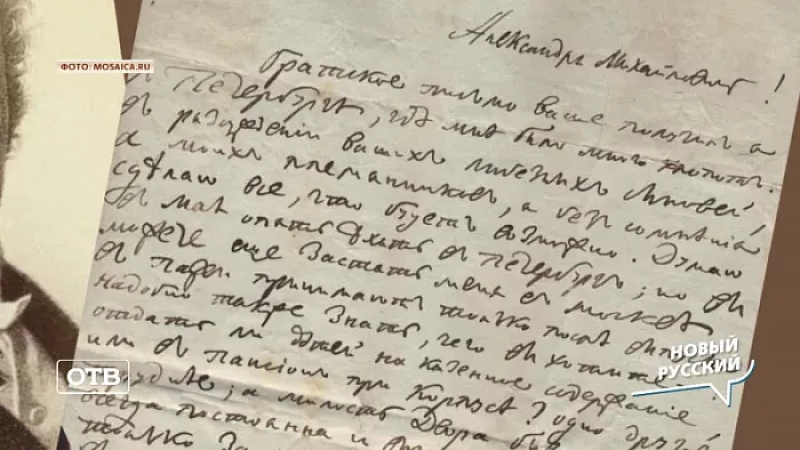 ФОТО: MOSAICA.RU
Александръ Михайловичъ!
Братское письмо ваше получилъ я
въ Петербургѣ, гдѣ мнѣ было много хлопотъ.
въ разсужденіи вашихъ любезныхъ сыновей,
а моихъ племянниковъ, я безъ сомнѣнія
сдѣлаю все, что будетъ возможно. Думаю
въ маѣ опять ѣхать въ Петербургъ; но вы
можете еще застать меня въ Москвѣ
въ пажи принимаютъ только послѣ
надобно также знать, чего вы хотите:
отдать ли дѣтей на казенное содержаніе
или въ пансіонъ при Корпусѣ? одно
а милость Двора
всегда постоянна и
только
ОТВ
НОВЫЙ
РУССКИЙ